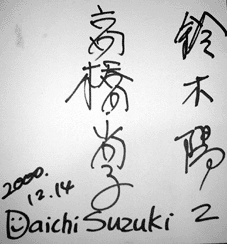 鈴木陽二
高橋尚子
2000.
12.14
Daichi Suzuki